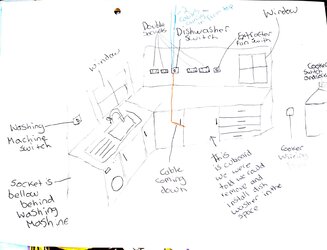 Double
Sockets
Dishwasher
Switch
Extractor
fan switch
Window
Window
Cooker
Switch
Washing
Machine
Switch
Socket is
bellow
behind
Washing
Mashine
Cable
coming
down
This
is cuboard
we were
told we could
remove and
install dish
washer in the
space
Cooker